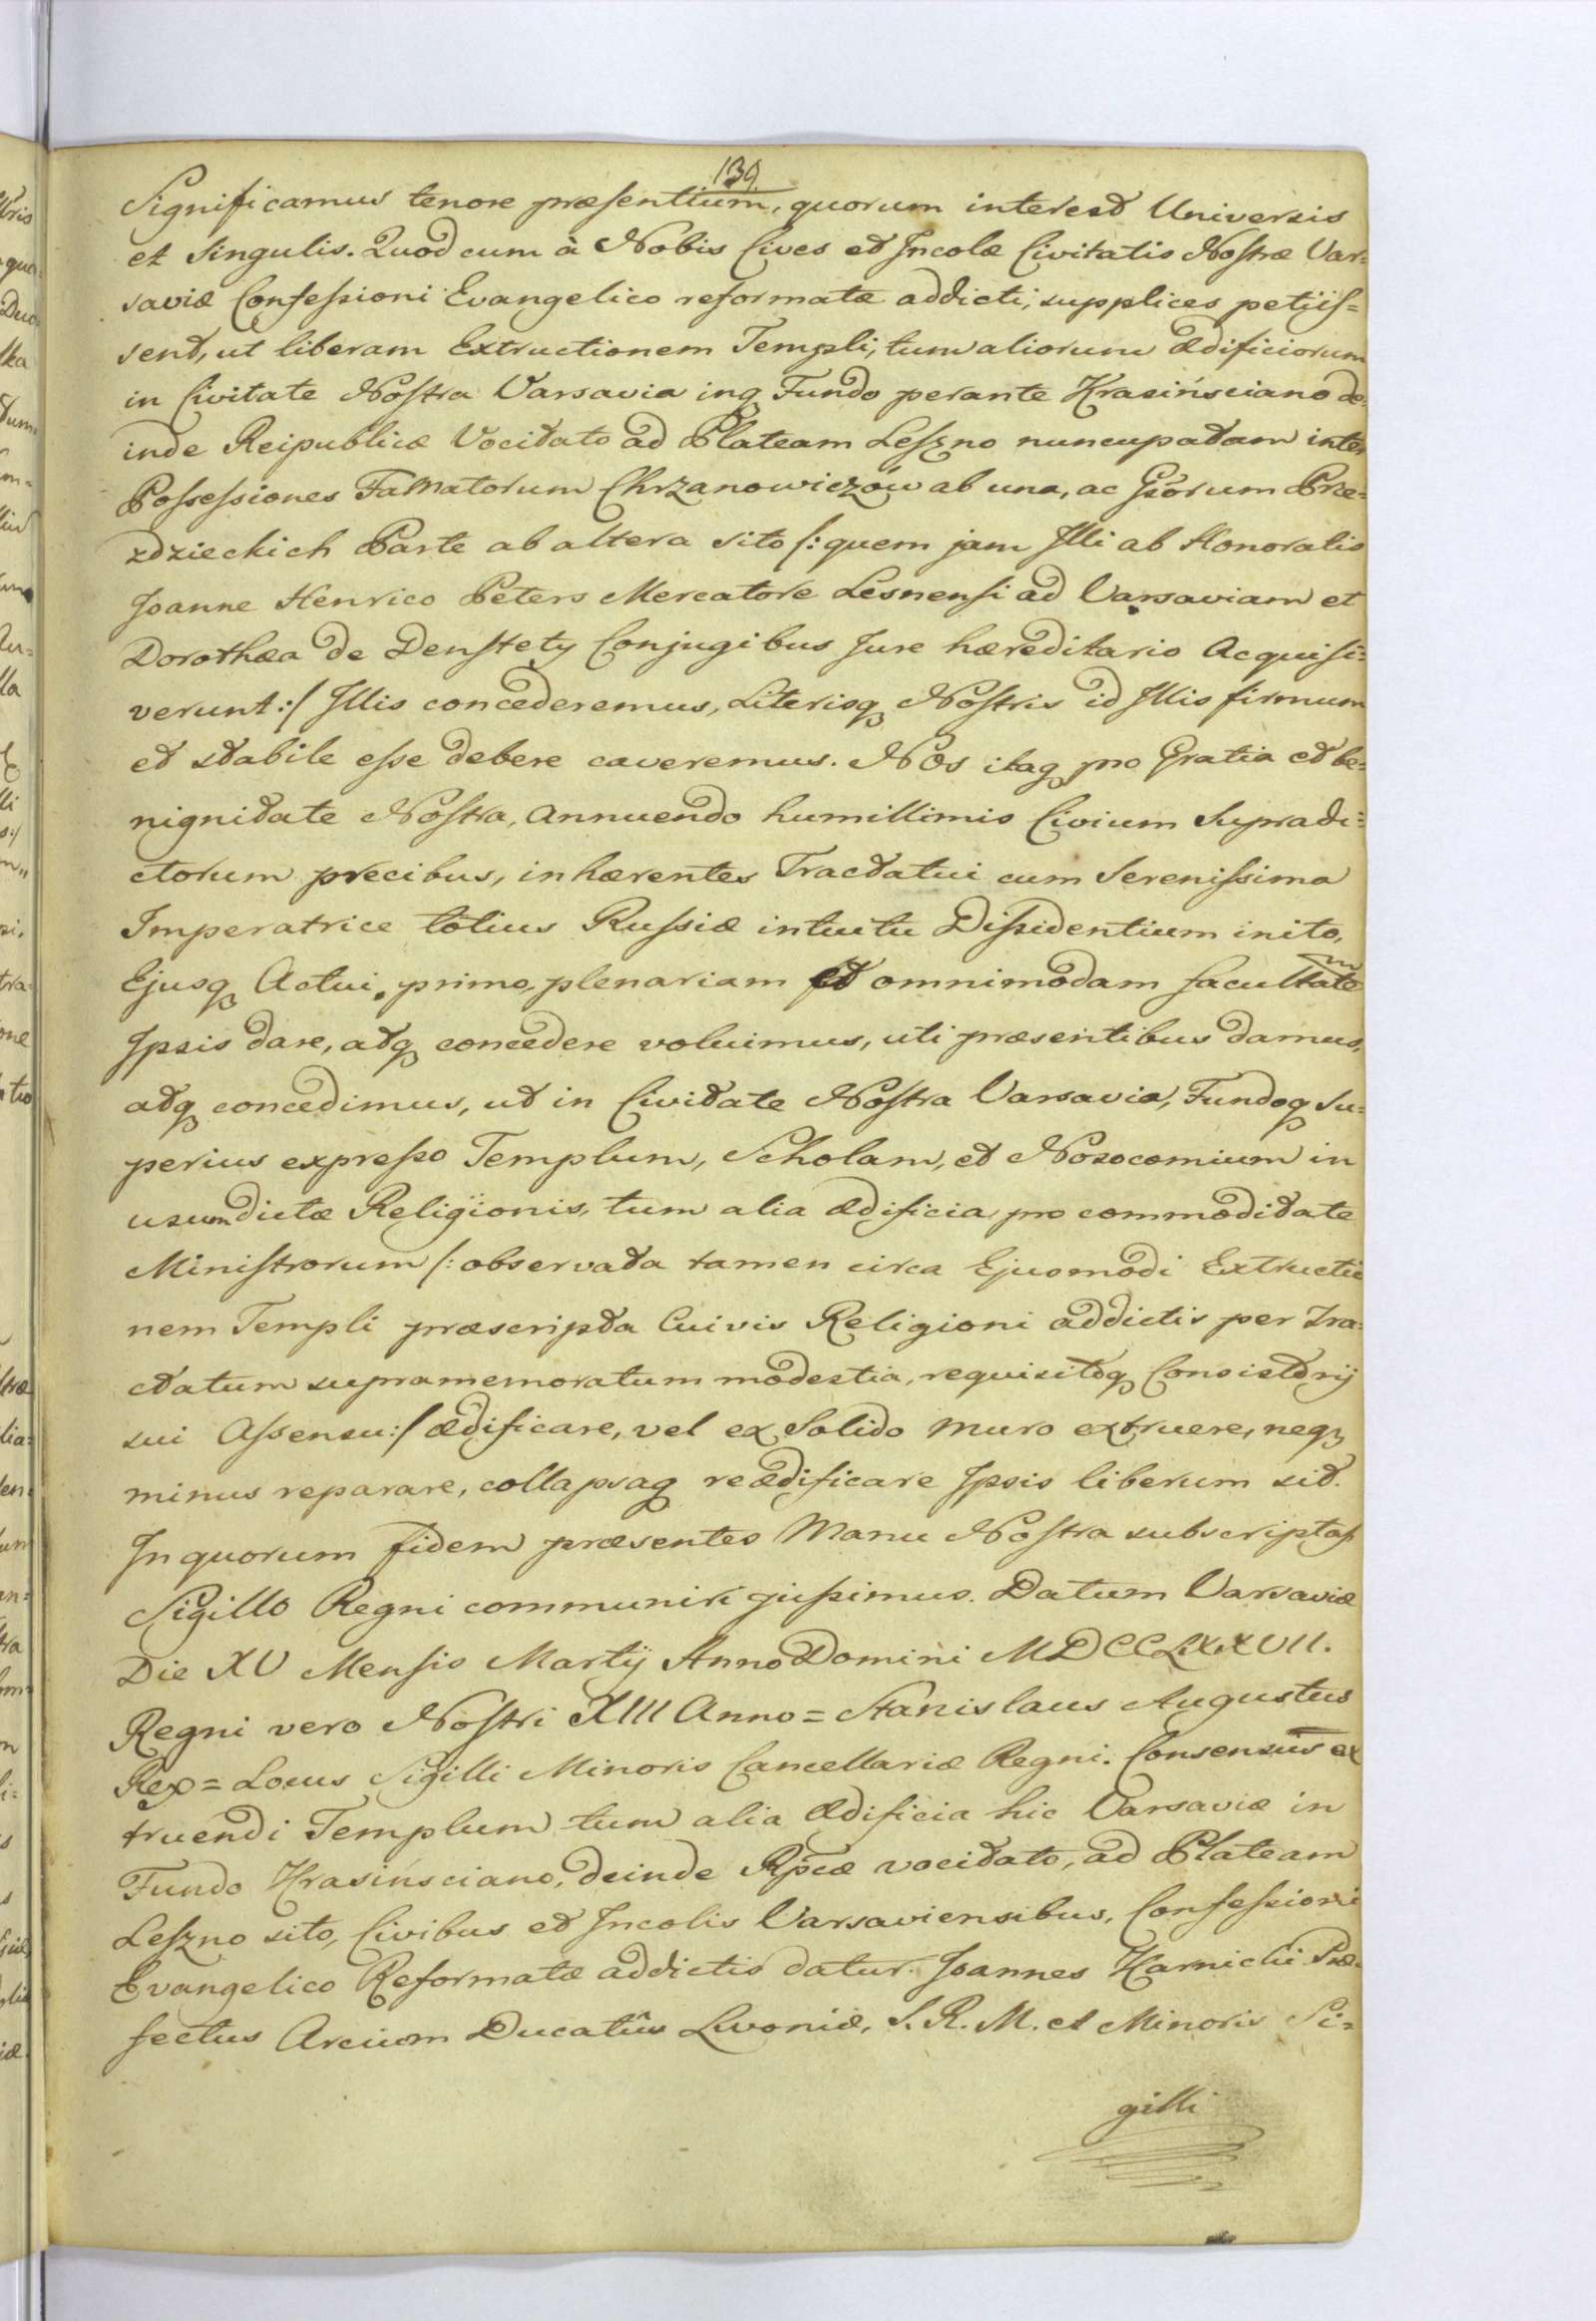 139.
Significamus tenore præsentium, quorum interest Universis
et Singulis. Quod cum à Nobis Cives et Incolæ Civitatis Nostræ Var=
saviæ Confessioni Evangelico reformatæ addicti, supplices petijs=
sent, ut liberam Extructionem Templi, tum aliorum Ædificiorum
in Civitate Nostra Varsavia inq Fundo perante Krasińsciano de=
inde Reipublicæ Vocitato ad Plateam Leszno nuncupatam inter
Possessiones Famatorum Chrzanowiczów ab una, ac Gsorum Prze=
zdzieckich Parte ab altera sito /: quem jam Illi ab Honoratis
Joanne Henrico Peters Mercatore Lesnensi ad Varsaviam et
Dorothæa de Denstety Conjugibus Jure hæreditario Acquisi=
verunt :/ Illis concederemus, Literisq Nostris id Illis firmum
et stabile esse debere caveremus. Nos itaq pro Gratia et be=
nignitate Nostra, annuendo humillimis Civium Supradi=
ctorum precibus, inhærentes Tractatui cum Serenissima
Imperatrice totius Russiæ intuitu Dissidentium inito,
Ejusq Actui primo, plenariam et omnimodam facultatem
Ipsis dare, atq concedere voluimus, uti præsentibus damus,
atq concedimus, ut in Civitate Nostra Varsavia, Fundoq Su=
perius expresso Templum, Scholam, et Nosocomium in
usum dictæ Religionis, tum alia ædificia pro commoditate
Ministrorum /: observata tamen circa Ejusmodi Extructio
nem Templi præscripta Cuivis Religioni addictis per Tra=
ctatum supramemoratum modestia, requisitoq Consistorij
sui Assensu :/ ædificare, vel ex Solido muro extruere, neq
minus reparare, collapsaq reædificare Ipsis liberum sit.
In quorum fidem præsentes Manu Nostra subscriptas
Sigillo Regni communiri jussimus. Datum Varsaviæ
Die XV Mensis Martij Anno Domini MDCCLXXVII.
Regni vero Nostri XIII Anno = Stanislaus Augustus
Rex = Locus Sigilli Minoris Cancellariæ Regni. Consensus ex
truendi Templum tum alia Ædificia hic Varsaviæ in
Fundo Krasińsciano, deinde Rpcæ vocitato, ad Plateam
Leszno sito, Civibus et Incolis Varsaviensibus, Confessioni
Evangelico Reformatæ addictis datur. Joannes Karnicki Præ=
fectus Arcium Ducatûs Livoniæ, S. R. M. et Minoris Si=
gilli